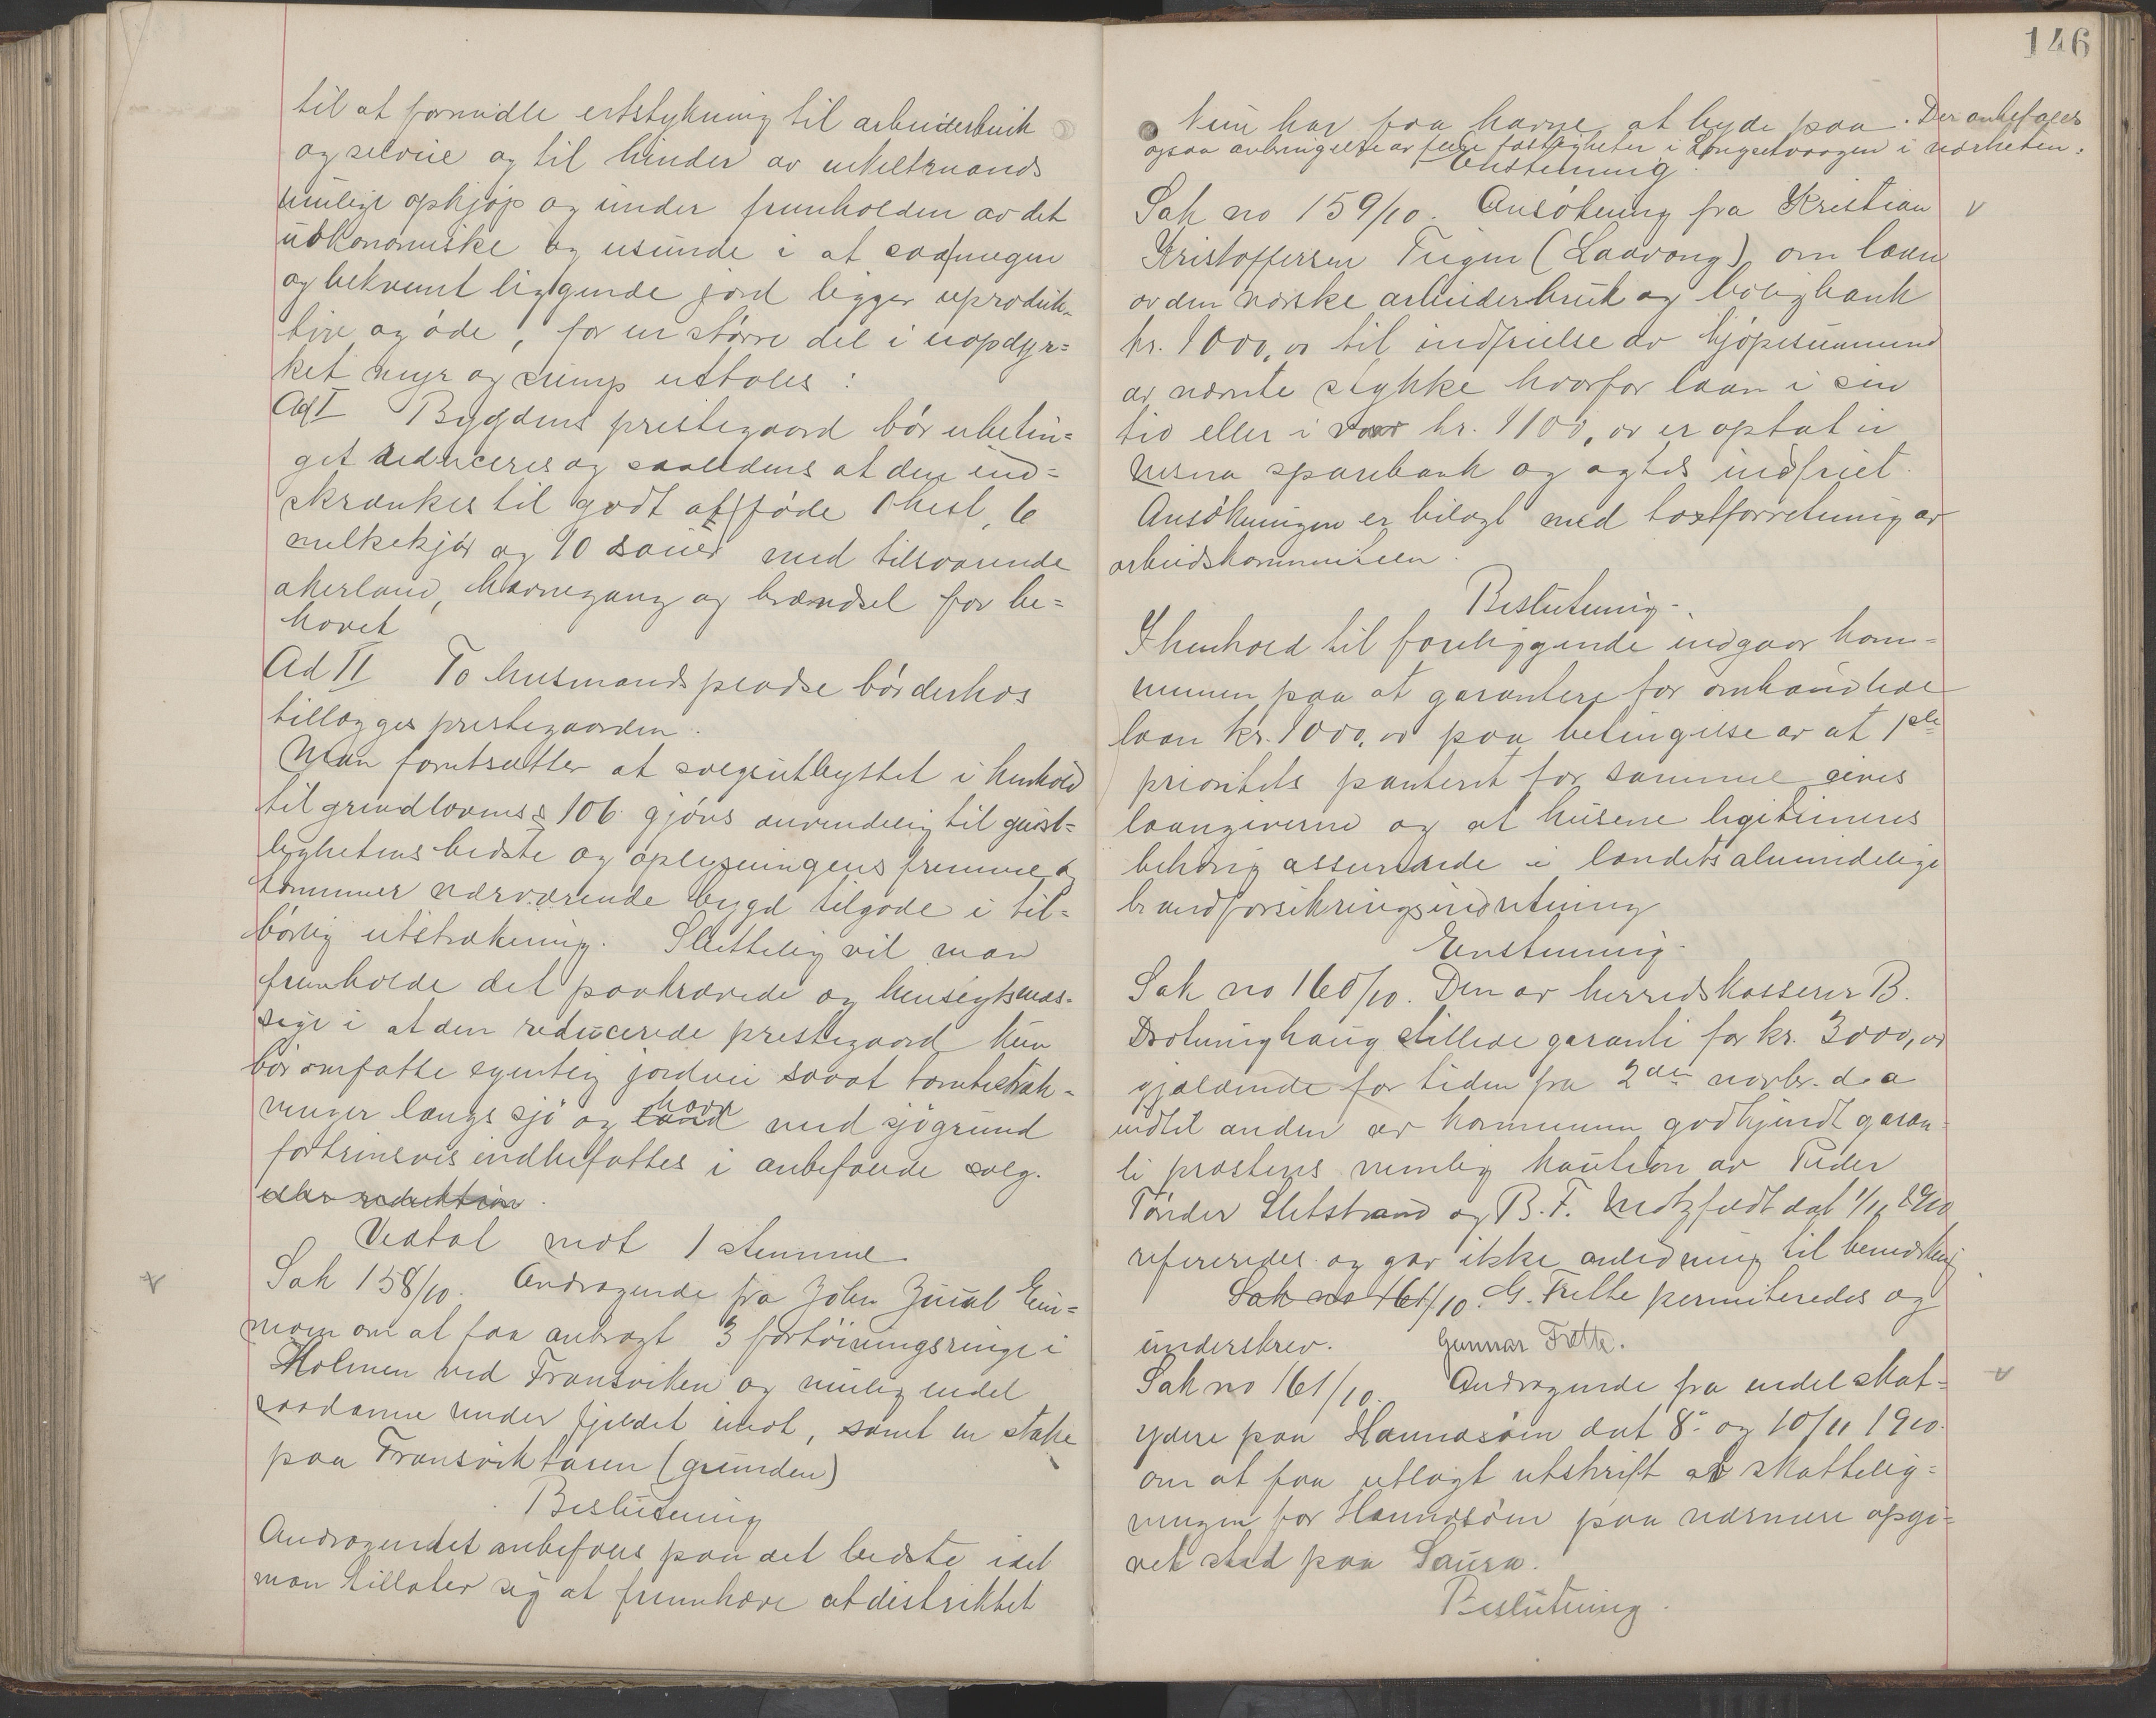 til at formidle utstykning til arbeiderbruk
og selveie og til hinder av enkeltmands
mulige opkjøp og under fremholden av det
uøkonomiske og usunde i at saa megen
og bekvemt liggende jord ligger uproduk-
tive og øde, for en større del i uopdyr=
ket myr og sump uttales:
Ad I Bygdens prestegaard bør ubetin=
get reduceres og saaledes at den ind=
skrænkes til godt at føde 1 hest, 6
melkekjør og 10 sauer med tilsvarende
akerland, havnegang og brændsel for be=
hovet
Ad II To husmandspladse bør derhos
tillægges prestegaarden.
Man forutsætter at salgsutbyttet i henhold
til grundlovens § 106 gjøres anvendelig til geist=
lighetens bedste og oplysningens fremme og
kommer nærværende bygd tilgode i til=
børlig utstrækning. Sluttelig vil man
fremholde det paakrævede og hensigtsmæs=
sige i at den reducerede prestegaard kun
bør omfatte egentlig jordvei saa at tomtestræk-
ninger langs sjø og land havn med sjøgrund
fortrinsvis indbefattes i anbefalede salg.
eller reduktion.
Vedtat mot 1 stemme
Sak 158/10. Andragende fra John Zuul Ein=
moen om at faa anbragt 3 fortøiningsringe i
Holmen ved Fransviken og mulig endel
saadanne under fjeldet imot, samt en stake
paa Fransviktaren (grunden)
Beslutning
Andragendet anbefales paa det bedste idet
man tillater sig at fremhæve at distriktet
146
kun har faa havne at byde paa. Der anbefales
ogsaa anbringelse av flere fastigheter i Longsetvaagen i nærheten.
Enstemmig.
Sak no 159/10. Ansøkning fra Kristian
Kristoffersen Teigen (Laavong) om laan
av den norske arbeiderbruk og boligbank
kr. 1000,00 til indfrielse av kjøpesummen
av nævnte stykke hvorfor laan i sin
tid eller i vaar kr. 1100,00 er optat i
Nesna sparebank og agtes indfriet.
Ansøkningen er bilagt med takstforretning av
arbeidskommiteen.
Beslutning.
I henhold til foreliggende indgaar kom=
munen paa at garantere for omhandlede
laan kr. 1000,00 paa betingelse av at 1ste
prioritets panteret for samme gives
laangiverne og at husene legitimeres
behørig assurerede i landets almindelige
brandforsikringsindretning
Enstemmig.
Sak no 160/10. Den av herredskasserer B.
Drotninghaug stillede garanti for kr. 3000,00
gjældende for tiden fra 2den novbr. d. a
indtil anden av kommunen godkjendt garan-
ti præsteres nemlig kaution av Peder
Tønder Sletstrand og B. F. Motzfeldt dat 1/11 1910
refereredes og gav ikke anledning til bemerkning
Sak no 161/10. G. Frette permiteredes og
underskrev. Gunnar Frette.
Sak no 161/10. Andragende fra endel skat=
ydere paa Hannasøin dat 8. og 10/11 1910.
om at faa utlagt utskrift av skattelig=
ningen for Hannesøen paa nærmere opgi=
vet sted paa Saura.
Beslutning.